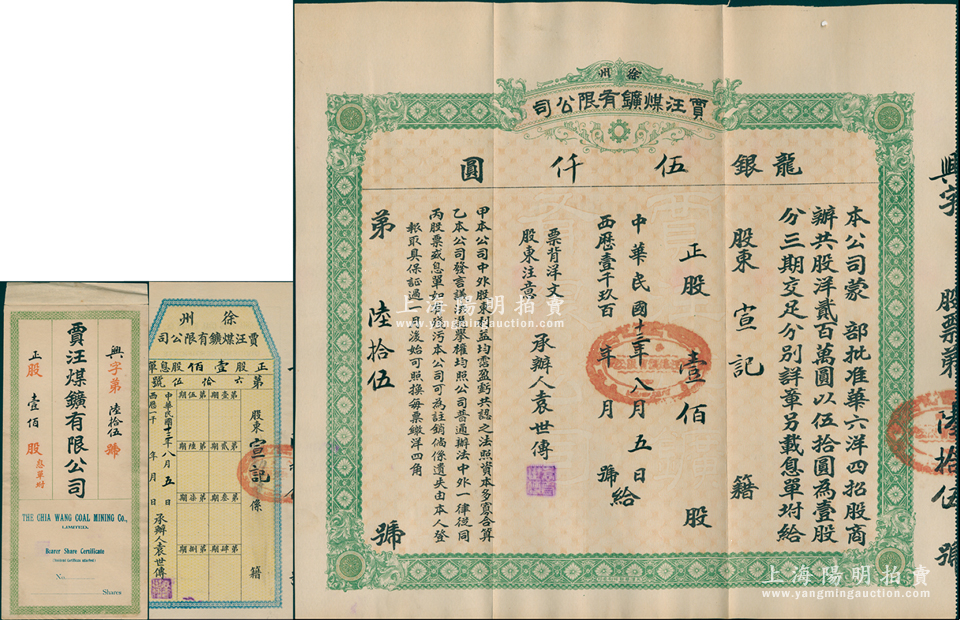 徐州
賈汪煤鑛有限公司
龍銀伍仟圓
本公司蒙 部批准華六洋四招股商
辦共股洋貳百萬圓以伍拾圓為壹股
分三期交足分別詳章另載息單坿給
股東 宣記 籍
正股壹佰股
中華民國十三年八月五日給
西歷壹千玖百 年 月 號
票背洋文
股東注意
承辦人袁世傳
甲本公司中外股東利益均霑盈虧共認之法照資本多寡合算
乙本公司發言議決選舉權均照公司普通辦法中外一律從同
丙股票或息單如有殘污本公司可為註銷倘係遺失由本人登
報取具保証過一月後始可照換每票繳洋四角
第陸拾伍號
興字 股票第陸拾伍號
興字第陸拾伍號
賈汪煤鑛有限公司
正股壹佰股
息單坿
THE CHIA WANG COAL MINING Co.,
LIMITED.
Bearer Share Certificate
No.
Shares
徐州
賈汪煤鑛有限公司
正股壹佰股息單
第六拾伍號
股東宣記係 籍
第壹期
第貳期
第叁期
第肆期
第伍期
第陸期
第柒期
第捌期
中華民國十三年八月五日
西歷一千 年 月 日
承辦人袁世傳
上海陽明拍賣
www.yangmingauction.com
上海陽明拍賣
www.yangmingauction.com